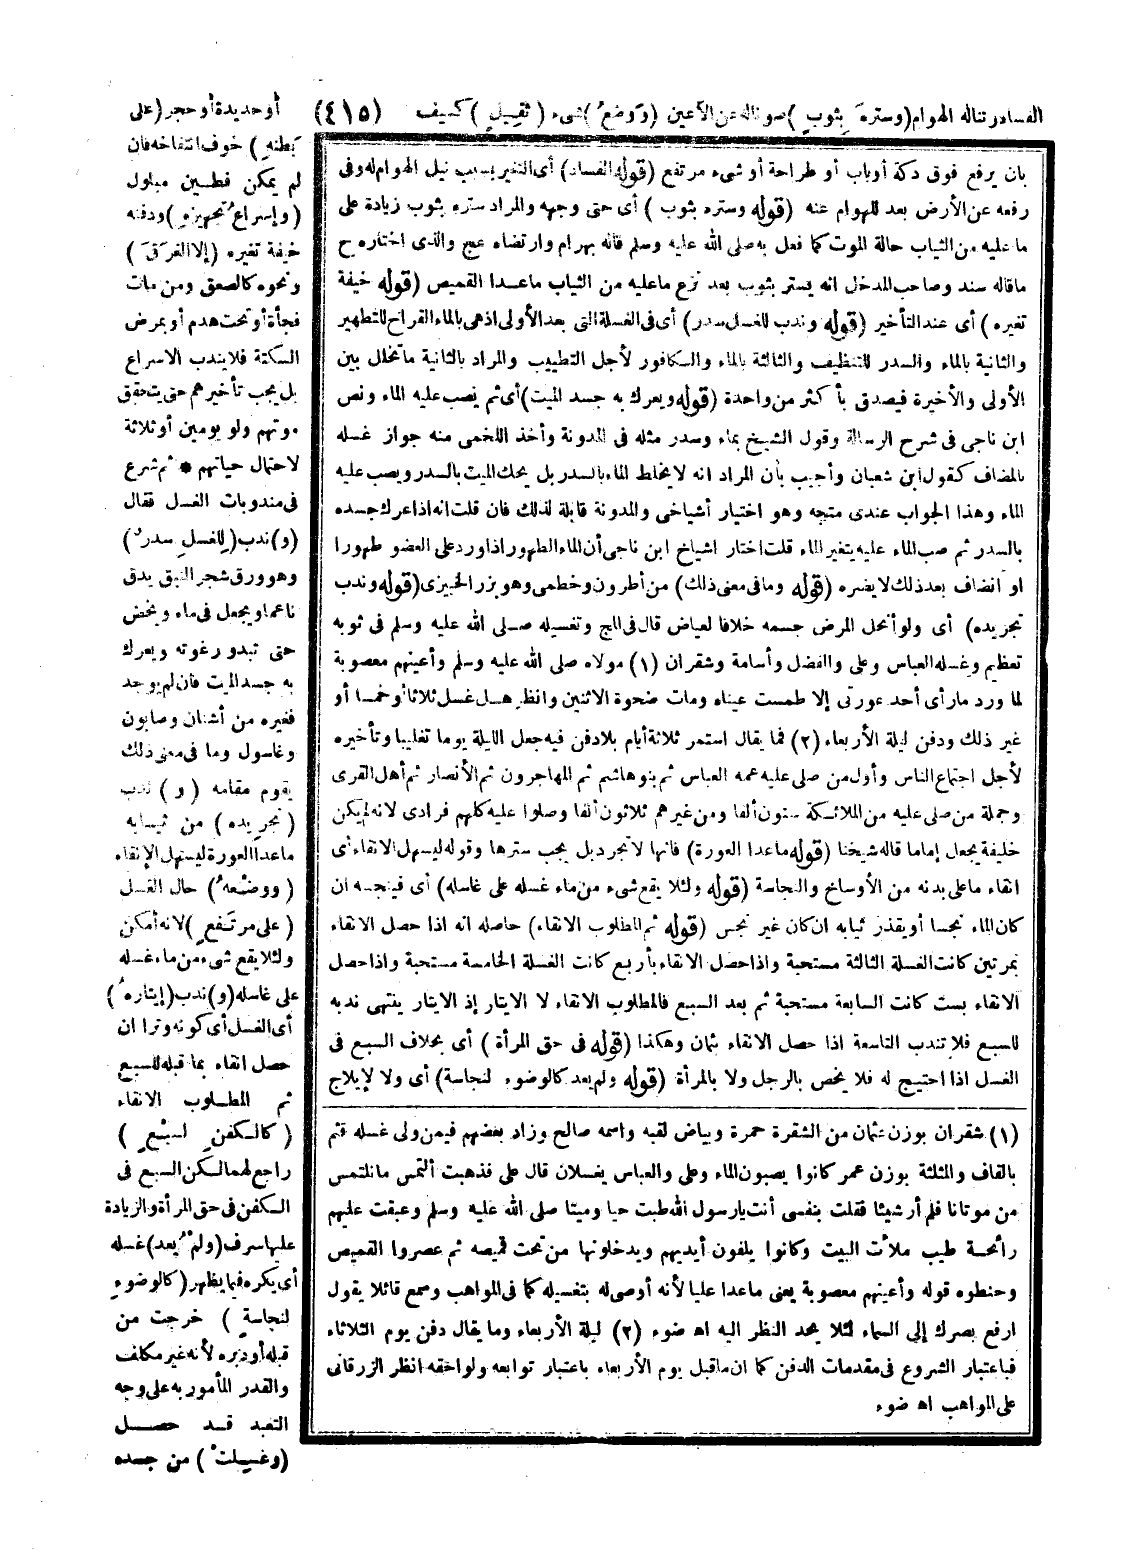 الفساد وتناله الهوام (وستره بثوب) صونا له عن الأعين (ووضع) شيء (ثقيل) كسيف (٤١٥)
أو حديدة أو حجر (على
بطنه) خوف انتفاخه فان
لم يمكن فطين مبلول
(وإسراع تجهيزه) ودفنه
خيفة تغيره (إلا الغرق)
ونحوه كالصعق ومن مات
فجأة أو تحت هدم أو بمرض
السكتة فلا يندب الاسراع
بل يجب تأخيرهم حتى يتحقق
موتهم ولو يومين أو ثلاثة
لاحتمال حياتهم * ثم شرع
فى مندوبات الغسل فقال
(و) ندب (للغسل سدر)
وهو ورق شجر النبق يدق
ناعما ويجعل فى ماء ويخض
حتى تبدو رغوته ويعرك
به جسد الميت فان لم يوجد
فغيره من أشنان وصابون
وغاسول وما فى معنى ذلك
يقوم مقامه (و) ندب
(تجريده) من ثيابه
ماعدا العورة ليسهل الإنقاء
(ووضعه) حال الغسل
(على مرتفع) لانه أمكن
ولئلا يقع شىء من ماء غسله
على غاسله (و) ندب (إيتاره)
أى الغسل أى كونه وترا ان
حصل انقاء بما قبله للسبع
ثم المطلوب الانقاء
(كالكفن لسبع)
راجع لهما لكن السبع فى
الكفن فى حق المرأة والزيادة
عليها سرف (ولم يعد) غسله
أى يكره فيما يظهر (كالوضوء
لنجاسة) خرجت من
قبله أو دبره لأنه غير مكلف
والقدر المأمور به على وجه
التعبد قد حصل
(وغسلت) من جسده
بان يرفع فوق دكة أو باب أو طراحة أو شىء مرتفع (قوله الفساد) أى التغير بسبب نيل الهوام له وفى
رفعه عن الأرض بعد للهوام عنه (قوله وستره بثوب) أى حتى وجهه والمراد ستره بثوب زيادة على
ما عليه من الثياب حالة الموت كما فعل به صلى الله عليه وسلم قاله بهرام وارتضاه عج والذى اختاره ح
ما قاله سند وصاحب المدخل انه يستر بثوب بعد نزع ما عليه من الثياب ماعدا القميص (قوله خيفة
تغيره) أى عند التأخير (قوله وندب للغسل سدر) أى فى الغسلة التى بعد الأولى اذ هى بالماء القراح للتطهير
والثانية بالماء والسدر للتنظيف والثالثة بالماء والكافور لأجل التطييب والمراد بالثانية ما تخلل بين
الأولى والأخيرة فيصدق بأكثر من واحدة (قوله ويعرك به جسد الميت) أى ثم يصب عليه الماء ونص
ابن ناجى فى شرح الرسالة وقول الشيخ بماء وسدر مثله فى المدونة وأخذ اللخمى منه جواز غسله
بالمضاف كقول ابن شعبان وأجيب بأن المراد انه لا يخلط الماء بالسدر بل يحك الميت بالسدر ويصب عليه
الماء وهذا الجواب عندى متجه وهو اختيار أشياخى والمدونة قابلة لذلك فان قلت انه اذا عرك جسده
بالسدر ثم صب الماء عليه يتغير الماء قلت اختار اشياخ ابن ناجى أن الماء الطهور اذا ورد على العضو طهورا
او انضاف بعد ذلك لا يضره (قوله وما فى معنى ذلك) من أطرون وخطمى وهو بزر الخبيزى (قوله وندب
تجريده) أى ولو أنحل المرض جسمه خلافا لعياض قال فى المج وتغسيله صلى الله عليه وسلم فى ثوبه
تعظيم وغسله العباس وعلى والفضل وأسامة وشقران (١) مولاه صلى الله عليه وسلم وأعينهم معصوبة
لما ورد ما رأى أحد عورتى إلا طمست عيناه ومات ضحوة الاثنين وانظر هل غسل ثلاثا أو خمسا أو
غير ذلك ودفن ليلة الأربعاء (٢) فما يقال استمر ثلاثة أيام بلا دفن فيه جعل الليلة يوما تغليبا وتأخيره
لأجل اجتماع الناس وأول من صلى عليه عمه العباس ثم بنو هاشم ثم المهاجرون ثم الأنصار ثم أهل القرى
وجملة من صلى عليه من الملائكة ستون ألفا ومن غيرهم ثلاثون ألفا وصلوا عليه كلهم فرادى لانه لم يكن
خليفة يجعل إماما قاله شيخنا (قوله ماعدا العورة) فانها لا تجرد بل يجب سترها وقوله ليسهل الانقاء أى
انقاء ما على بدنه من الأوساخ والنجاسة (قوله ولئلا يقع شىء من ماء غسله على غاسله) أى فينجسه ان
كان الماء نجسا أو يقذر ثيابه ان كان غير نجس (قوله ثم المطلوب الانقاء) حاصله انه اذا حصل الانقاء
بمرتين كانت الغسلة الثالثة مستحبة واذا حصل الانقاء بأربع كانت الغسلة الخامسة مستحبة واذا حصل
الانقاء بست كانت السابعة مستحبة ثم بعد السبع فالمطلوب الانقاء لا الايتار إذ الايتار ينتهى ندبه
للسبع فلا تندب التاسعة اذا حصل الانقاء بثمان وهكذا (قوله فى حق المرأة) أى بخلاف السبع فى
الغسل اذا احتيج له فلا يخص بالرجل ولا بالمرأة (قوله ولم يعد كالوضوء لنجاسة) أى ولا لإيلاج
(١) شقران بوزن عثمان من الشقرة حمرة وبياض لقبه واسمه صالح وزاد بعضهم فيمن ولى غسله قثم
بالقاف والمثلثة بوزن عمر كانوا يصبون الماء وعلى والعباس يغسلان قال على فذهبت ألتمس ما نلتمس
من موتانا فلم أر شيئا فقلت بنفسى أنت يا رسول الله طبت حيا وميتا صلى الله عليه وسلم وعبقت عليهم
رائحة طيب ملأت البيت وكانوا يلفون أيديهم ويدخلونها من تحت قميصه ثم عصروا القميص
وحنطوه قوله وأعينهم معصوبة يعنى ماعدا عليا لأنه أوصى له بتغسيله كما فى المواهب وسمع قائلا يقول
ارفع بصرك إلى السماء لئلا يحد النظر اليه اه ضوء (٢) ليلة الأربعاء وما يقال دفن يوم الثلاثاء
فباعتبار الشروع فى مقدمات الدفن كما ان ما قيل يوم الأربعاء باعتبار توابعه ولواحقه انظر الزرقانى
على المواهب اه ضوء